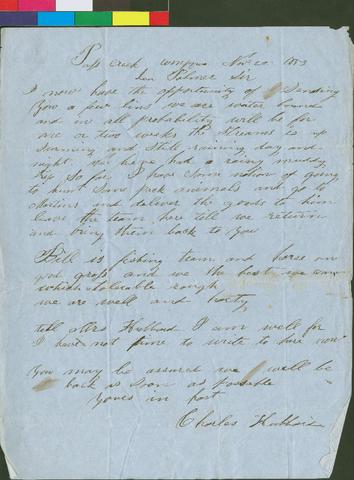 Pass Creek Nov 20 1853
Palmer Sir
I now have the opportunity of Sending
You a few lins we are water bound
and in all probability will be for
one or two weeks the Streams is up
and still raining day and
night we have had a rainy muddy
So far, I have Some notion of going
to hunt Some pack animals and go to
Martins and deliver the goods to him
leave the team here till we return
and bring them back to You
Bill is team and horse on
good grass and we the best we can
which tolerable rough
we are well and harty
tell Mrs Hubbard I am well for
I have not time to write to hure now
You may be assured we will be
back as soon as possable
Yours in hast
Charles Hubbard